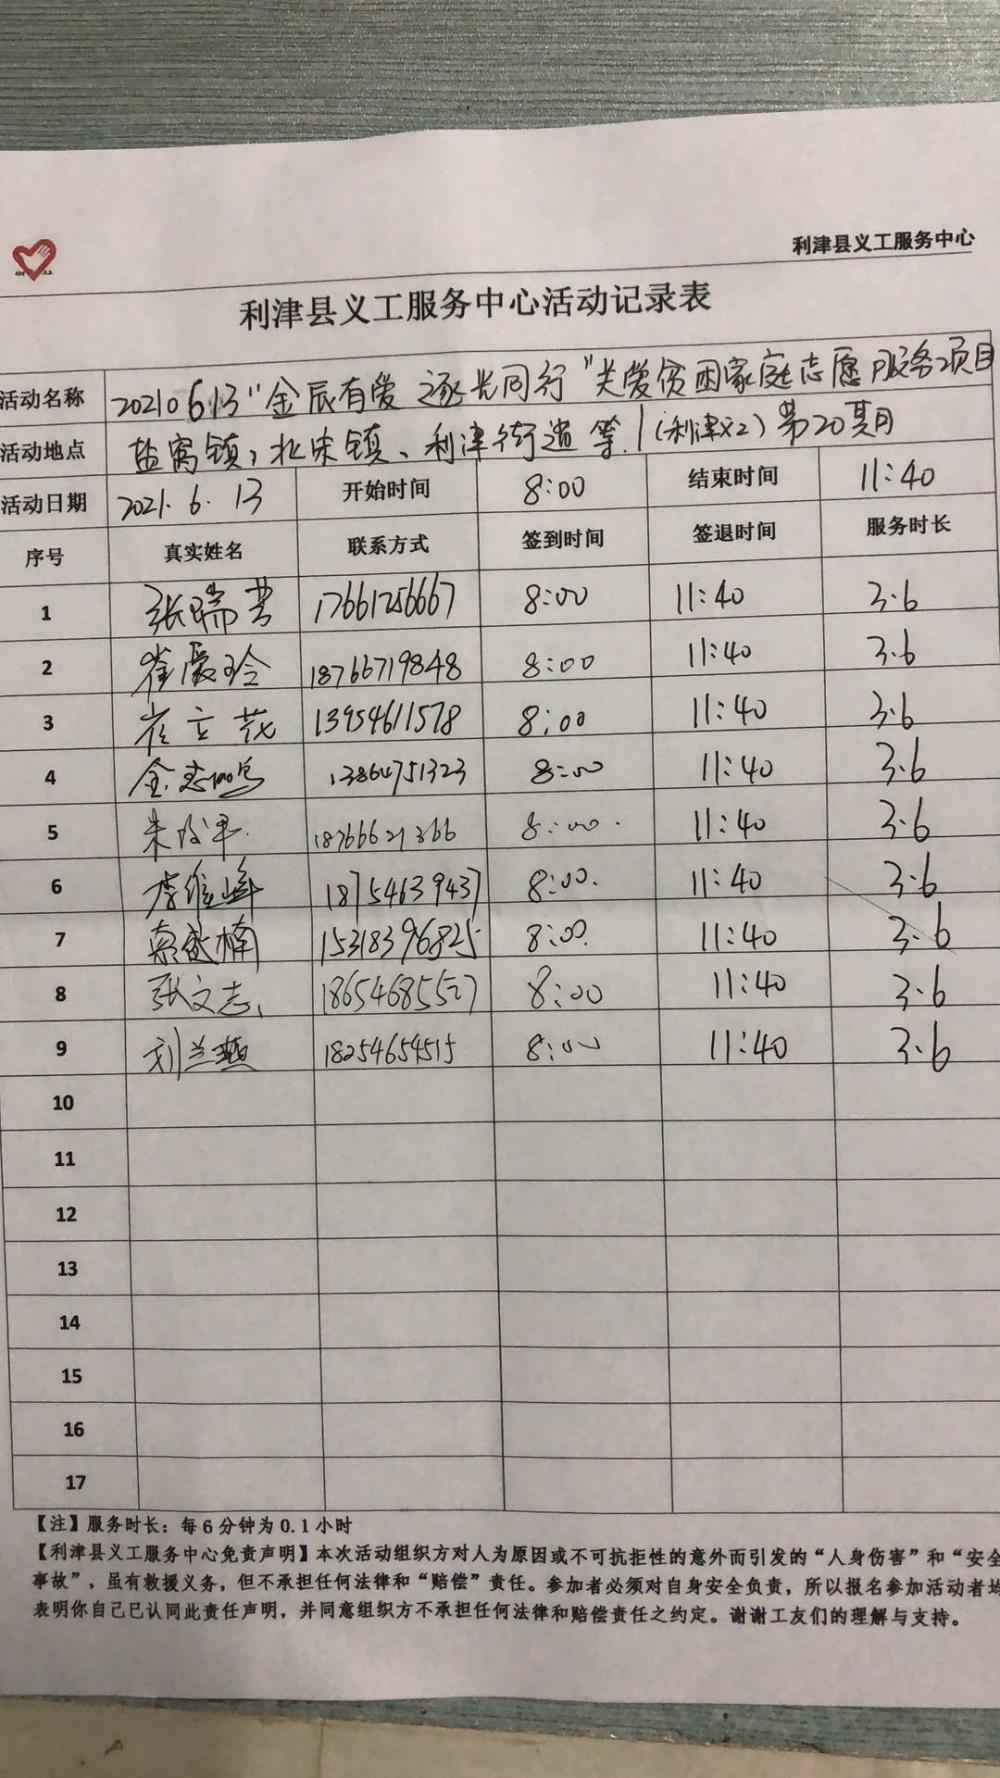 利津县义工服务中心
利津县义工服务中心活动记录表
活动名称 20210613"金辰有爱 逐光同行"关爱贫困家庭志愿服务项目
活动地点 盐窝镇、北宋镇、利津街道等.1(利津义工)第20期
活动日期 2021.6.13 开始时间 8:00 结束时间 11:40
序号 真实姓名 联系方式 签到时间 签退时间 服务时长
1 张瑞 17661256667 8:00 11:40 3.6
2 崔爱玲 18766719848 8:00 11:40 3.6
3 崔立花 13954611578 8:00 11:40 3.6
4 金志鸣 13864751323 8:00 11:40 3.6
5 朱 18766621366 8:00 11:40 3.6
6 李维峰 18754639437 8:00. 11:40 3.6
7 楠 15318396825 8:00. 11:40 3.6
8 张文志 18654685527 8:00 11:40 3.6
9 刘兰燕 18254654515 8:00 11:40 3.6
10
11
12
13
14
15
16
17
【注】服务时长：每6分钟为0.1小时
【利津县义工服务中心免责声明】本次活动组织方对人为原因或不可抗拒性的意外而引发的“人身伤害”和“安全
事故”，虽有救援义务，但不承担任何法律和“赔偿”责任。参加者必须对自身安全负责，所以报名参加活动者均
表明你自己已认同此责任声明，并同意组织方不承担任何法律和赔偿责任之约定。谢谢工友们的理解与支持。